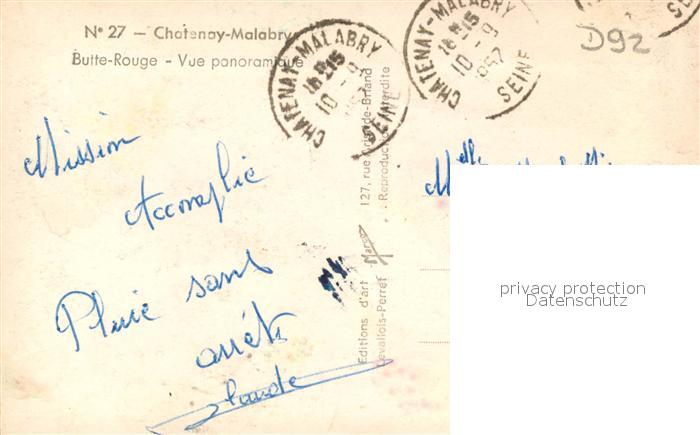 N° 27 - Chatenay-Malabry
Butte-Rouge - Vue panoramique
CHATENAY-MALABRY
18H15
10-9
SEINE
CHATENAY-MALABRY
18H15
10-9
1957
SEINE
D92
Mission
Accomplie
Pluie sans
arrêt
Claude
Editions d'art Marso 127, rue Aristide-Briand
Levallois-Perret : Reproduction interdite
Melle
privacy protection
Datenschutz